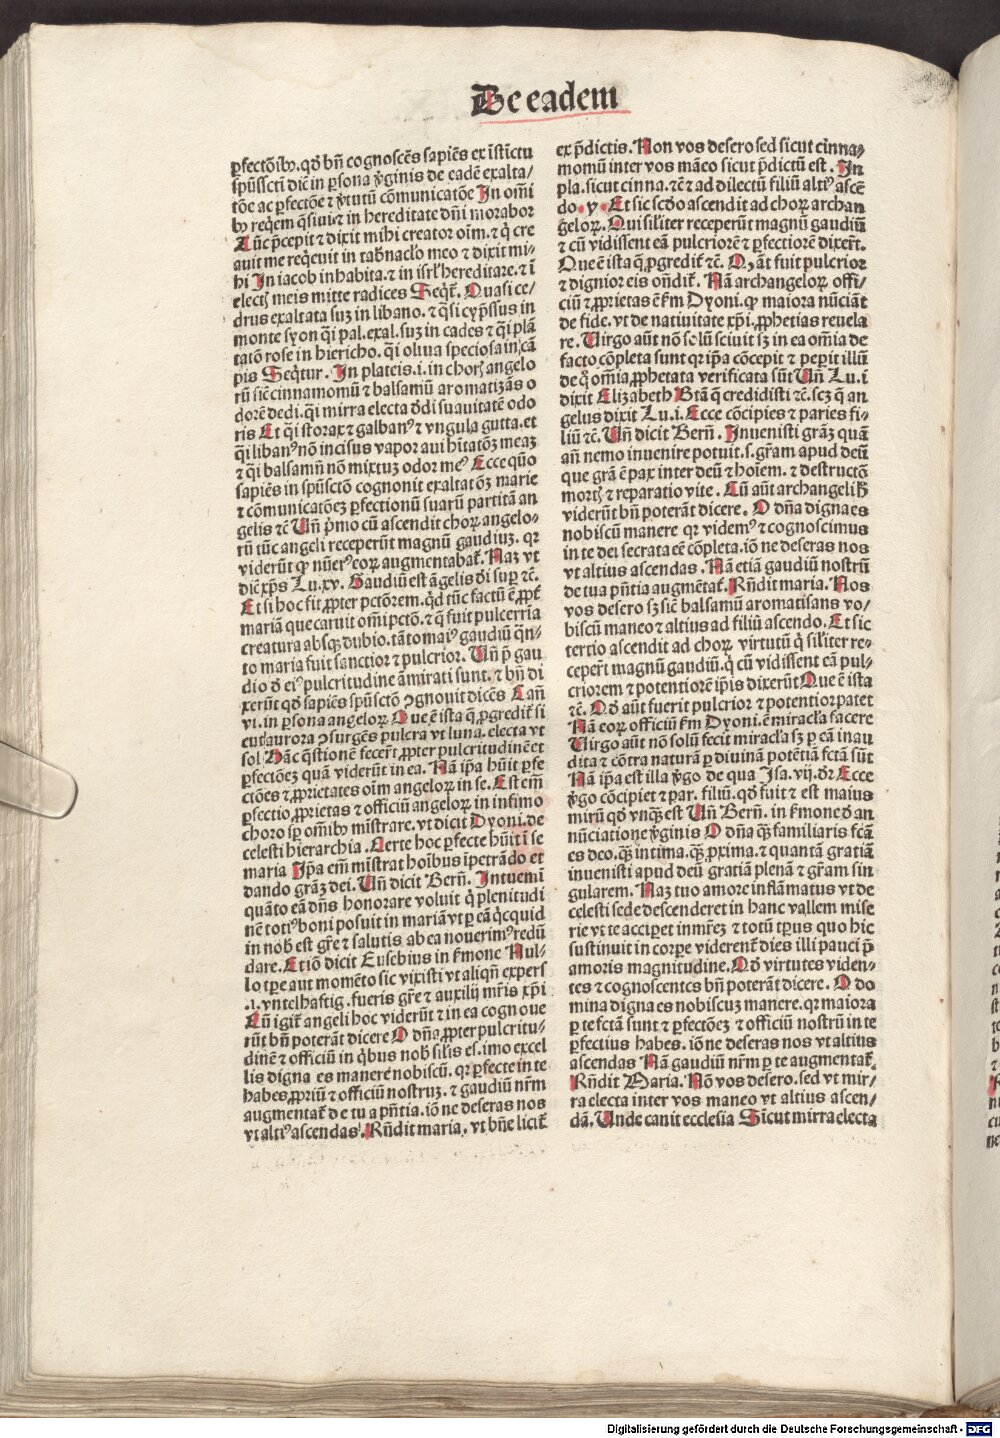 De eadem
ꝑfectōibꝫ. qď bn̄ cognoscēs sapiēs ex īstīctu
spūssctī dic̄ in ꝑsona v̓ginis de eadē exalta/
tōe ac ꝑfectōe ⁊ v̓tutū cōmunicatōe In om̄i
bꝫ reqēm q̄siui⁊ in hereditate dn̄i morabor
Tūc p̄cepit ⁊ dixit mihi creator oīm. ⁊ q̇ cre
auit me req̇euit in tab̓naclo̓ meo ⁊ dixit mi⸗
hi In iacob inhabita. ⁊ in isrl̓ hereditare. ⁊ ī
electꝭ meis mitte radices Seqt̄. Quasi ce/
drus exaltata suꝫ in libano. ⁊ q̄si cyp̄ssus in
monte syon q̄i pal. exal. suꝫ in cades ⁊ q̄i plā
tatō rose in hiericho. q̄i oliua speciosa in cā
pis Seq̄tur. In plateis .i. in chorꝭ angelo
rū sic̄ cinnamomū ⁊ balsamū aromatizās o
dorē dedi. q̄i mirra electa dedi suauitatē odo
ris Et q̄i storax ⁊ galbanꝰ ⁊ vngula gutta. et
q̄i libanꝰ nō incisus vapor aui h̄itatōꝫ meaꝫ
⁊ q̄i balsamū nō mixtuꝫ odor meꝰ Ecce quō
sapiēs in spūsctō cognouit exaltatōꝫ marie
⁊ cōmunicatōeꝫ ꝑfectionū suarū partitā an
gelis ⁊c̄ Un̄ p̓mo cū ascendit choꝝ angelo⸗
rū tūc angeli receperūt magnū gaudiuꝫ. qꝛ
viderūt ꝙ nūerꝰ eoꝝ augmentabat᷑. Naꝫ vt
dic̄ xp̄s Lu. xv. Gaudiū est āgelis dei suꝑ ⁊c̄.
Et si hoc fit ꝓpter pctōrem. qď tūc factū ē ꝓpt̓
mariā que caruit om̄i pctō. ⁊ q̄ fuit pulcerria
creatura absqꝫ dubio. tāto maiꝰ gaudiū q̄n⸗
to maria fuit sanctior ⁊ pulcrior. Un̄ p̄ gau
dio ⁊ eiꝰ pulcritudine āmirati sunt. ⁊ bn̄ di
xerūt qď sapiēs spūsctō ꝯgnouit dicēs Cān̄
vi. in ꝑsona angeloꝝ Que ē ista q̄ ꝓgredit᷑ si
cut aurora ꝯsurgēs pulcra vt luna. electa vt
sol Hāc q̄stionē fecer̄t ꝓpter pulcritudinē et
ꝑfectiōeꝫ quā viderūt in ea. Nā ip̄a hūit ꝑfe
ctiōes ⁊ ꝓprietates oīm angeloꝝ in se. Est em̄
ꝑfectio ꝓprietas ⁊ officiū angeloꝝ in infimo
choro sꝑ om̄ibꝫ mīstrare. vt dicit Dyoni. de
celesti hierarchia. Certe hoc ꝑfecte hūit ī se
maria Ip̄a em̄ mīstrat hoībus īpetrādo et
dando grāꝫ dei. Un̄ dicit Bern̄. Intuemī
quāto eā dn̄s honorare voluit q̇ plenitudi
nē totiꝰ boni posuit in mariā vt ꝑ eā q̇cquid
in nob̓ est gr̄e ⁊ salutis ab ea nouerimꝰ redū
dare. Et iō dicit Eusebius in ẜmone Nul⸗
lo tꝑe aut momēto sic vixisti vt aliqn̄ expers
.i. vntelhafftig. fueris gr̄e ⁊ auxilij mr̄is xp̄i
Cū igit᷑ angeli hoc viderūt ⁊ in ea cognoue
rūt bn̄ poterāt dicere O dn̄a ꝓpter pulcritu⸗
dinē ⁊ officiū in q̇bus nob̓ silis es. imo excel
lis digna es manere nobiscū. qꝛ ꝑfecte in te
habes ꝓpriū ⁊ officiū nostruꝫ. ⁊ gaudiū nr̄m
augmentat᷑ de tua p̄ntia. iō ne deseras nos
vt altiꝰ ascendas. Rn̄dit maria. vt bn̄e licit᷑
ex p̄dictis. Non vos desero sed sicut cīnna⸗
momū inter vos māeo sicut p̄dictū est. In
pla. sicut cinna. ⁊c̄ ⁊ ad dilectū filiū altiꝰ ascē
do. y. Et sic scďo ascendit ad choꝝ archan
geloꝝ. Qui silīter receperūt magnū gaudiū
⁊ cū vidissent eā pulcriorē ⁊ ꝑfectiorē dixer̄t.
Que ē ista q̄ ꝓgredit᷑ ⁊c̄. Qꝫ āt fuit pulcrior
⁊ dignior eis on̄dit᷑. Nā archangeloꝝ offi⸗
ciū ⁊ ꝓprietas ē ẜm Dyoni. ꝙ maiora nūciāt
de fide. vt de natiuitate xp̄i. ꝓphetias reuela
re. Uirgo aūt nō solū sciuit sꝫ in ea om̄ia de
facto cōpleta sunt qꝛ ip̄a cōcepit ⁊ peperit illū
de q̊ om̄ia ꝓphetata verificata sūt Un̄ Lu. i
dixit Elizabeth Btā q̄ credidisti ⁊c̄. scꝫ q̄ an
gelus dixit Lu. i. Ecce cōcipies ⁊ paries fi⸗
liū ⁊c̄. Un̄ dicit Bern̄. Inuenisti grāꝫ quā
an̄ nemo inuenire potuit. s. gr̄am apud deū
que grā ē pax inter deū ⁊ hoīem. ⁊ destructō
mortꝭ ⁊ reparatio vite. Cū aūt archangeli h̓
viderūt bn̄ poterāt dicere. O dn̄a digna es
nobiscū manere qꝛ videmꝰ ⁊ cognoscimus
in te dei secrata eē cōpleta. iō ne deseras nos
vt altius ascendas. Nā etiā gaudiū nostrū
de tua p̄ntia augmētat᷑. Rn̄dit maria. Nos
vos desero sꝫ sic̄ balsamū aromatisans vo/
biscū maneo ⁊ altius ad filiū ascendo. Et sic
tertio ascendit ad choꝝ virtutū q̇ silīter re⸗
ceper̄t magnū gaudiū. q̇ cū vidissent eā pul⸗
criorem ⁊ potentiorē ip̄is dixerūt Que ē ista
⁊c̄. Qď aūt fuerit pulcrior ⁊ potentior patet
Nā eoꝝ officiū ẜm Dyoni. ē miracl̓a facere
Uirgo aūt nō solū fecit miracl̓a sꝫ ꝑ eā inau
dita ⁊ cōtra naturā ꝑ diuinā potētiā fctā sūt
Nā ip̄a est illa v̓go de qua Isa. vij. dr̄ Ecce
v̓go cōcipiet ⁊ par. filiū. qď fuit ⁊ est maius
mirū qď vnqꝫ est Un̄ Bern̄. in ẜmone de an
nūciatione v̓ginis O dn̄a qꝫ familiaris fcā
es deo. qꝫ intima. qꝫ ꝓxima. ⁊ quantā gratiā
inuenisti apud deū gratiā plenā ⁊ gr̄am sin
gularem. Naꝫ tuo amore inflāmatus vt de
celesti sede descenderet in hanc vallem mise
rie vt te acciꝑet in mr̄eꝫ ⁊ totū tꝑus quo hic
sustinuit in corꝑe viderent᷑ dies illi pauci p̄
amoris magnitudine. Qď virtutes viden⸗
tes ⁊ cognoscentes bn̄ poterāt dicere. O do
mina digna es nobiscuꝫ manere. qꝛ maiora
ꝑ te fctā sunt ⁊ ꝑfectōeꝫ ⁊ officiū nostrū in te
ꝑfectius habes. iō ne deseras nos vt altius
ascendas Nā gaudiū nr̄m ꝑ te augmentat᷑.
Rn̄dit Maria. Nō vos desero. sed vt mir/
ra electa inter vos maneo vt altius ascen⸗
dā. Unde canit ecclesia Sicut mirra electa
Digitalisierung gefördert durch die Deutsche Forschungsgemeinschaft - DFG